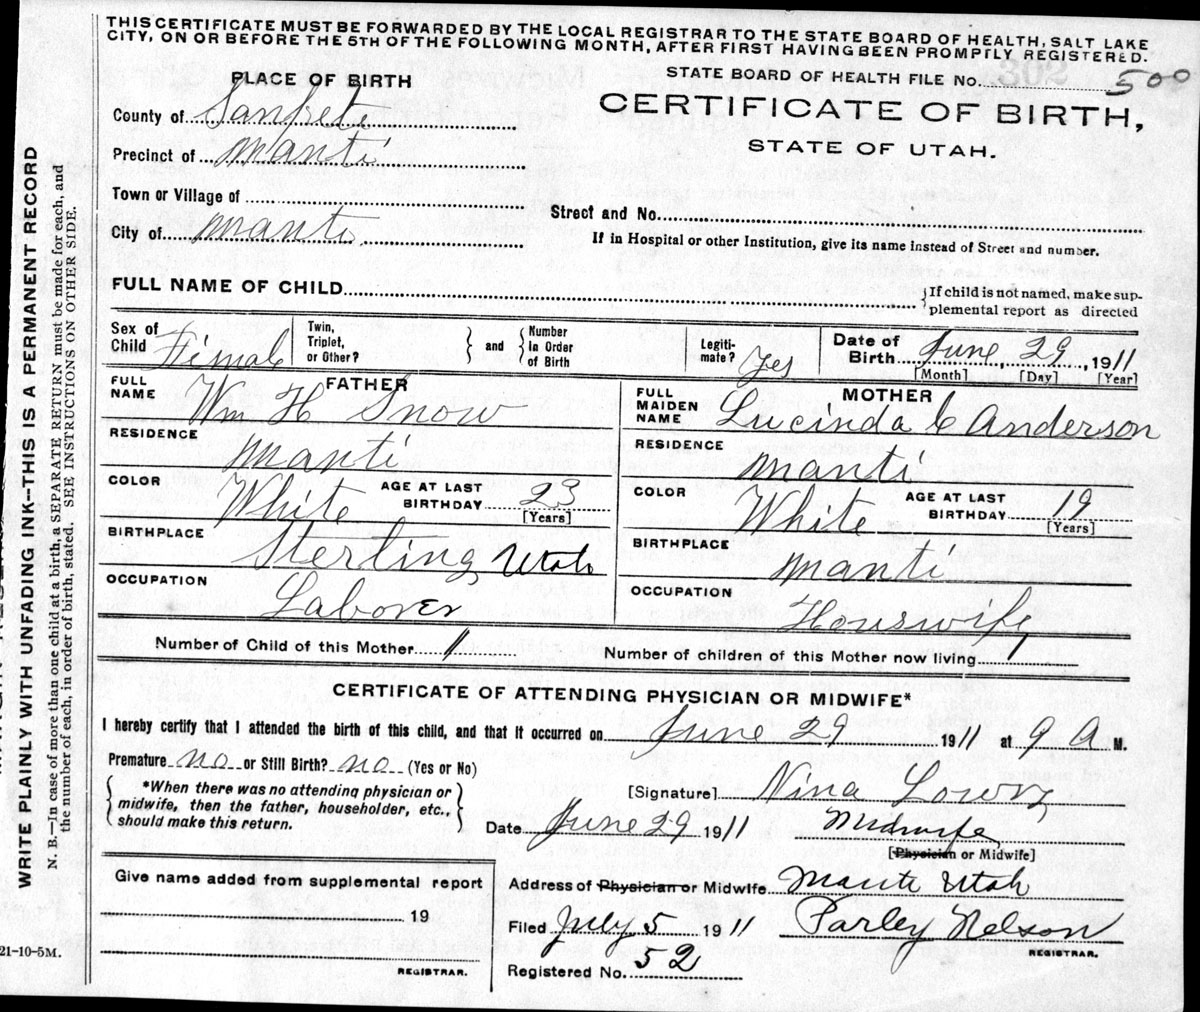 THIS CERTIFICATE MUST BE FORWARDED BY THE LOCAL REGISTRAR TO THE STATE BOARD OF HEALTH, SALT LAKE
CITY, ON OR BEFORE THE 5TH OF THE FOLLOWING MONTH, AFTER FIRST HAVING BEEN PROMPTLY REGISTERED.
PLACE OF BIRTH
STATE BOARD OF HEALTH FILE No. 500
CERTIFICATE OF BIRTH,
STATE OF UTAH.
County of Sanpete
Precinct of Manti
Town or Village of
City of Manti
Street and No.
If in Hospital or other Institution, give its name instead of Street and number.
FULL NAME OF CHILD
{If child is not named, make sup-
plemental report as directed
Sex of Child Femal
Twin, Triplet, or Other? } and { Number In Order of Birth
Legiti-mate? Yes
Date of Birth June 29, 1911
[Month] [Day] [Year]
FATHER
FULL NAME Wm H Snow
RESIDENCE Manti
COLOR White AGE AT LAST BIRTHDAY 23
[Years]
BIRTHPLACE Sterling Utah
OCCUPATION Laborer
MOTHER
FULL MAIDEN NAME Lucinda C Anderson
RESIDENCE Manti
COLOR White AGE AT LAST BIRTHDAY 19
[Years]
BIRTHPLACE Manti
OCCUPATION Houswife
Number of Child of this Mother 1
Number of children of this Mother now living 1
CERTIFICATE OF ATTENDING PHYSICIAN OR MIDWIFE*
I hereby certify that I attended the birth of this child, and that it occurred on June 29 1911 at 9 A M.
Premature no or Still Birth? no (Yes or No)
{ *When there was no attending physician or
midwife, then the father, householder, etc.,
should make this return. }
[Signature] Nina Lowry
Date June 29 1911 Midwife
[Physician or Midwife]
Give name added from supplemental report
19
REGISTRAR.
Address of Physician or Midwife Manti Utah
Filed July 5 1911 Parley Nelson
REGISTRAR.
Registered No. 52
21-10-5M.
WRITE PLAINLY WITH UNFADING INK—THIS IS A PERMANENT RECORD
N. B.—In case of more than one child at a birth, a SEPARATE RETURN must be made for each, and
the number of each, in order of birth, stated. SEE INSTRUCTIONS ON OTHER SIDE.